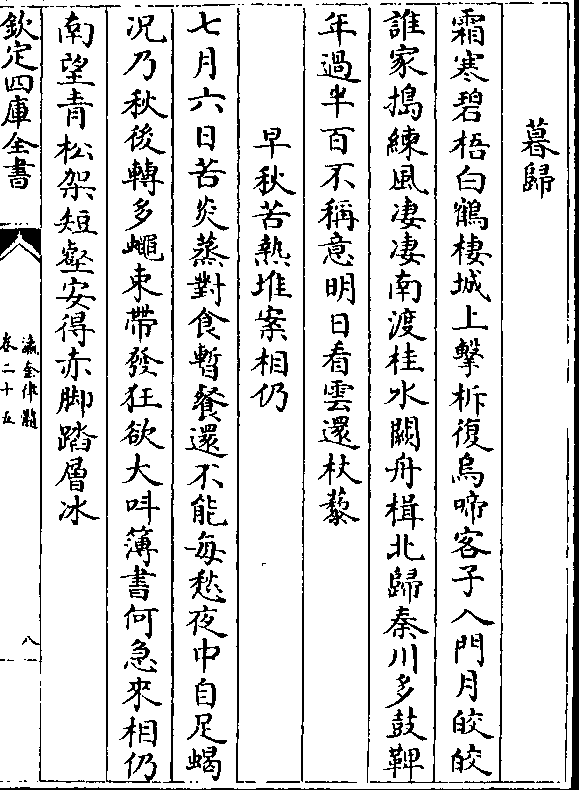 暮歸
霜寒碧梧白鶴棲城上擊柝復烏啼客子入門月皎皎
誰家搗練風凄凄南渡桂水闕舟楫北歸秦川多鼓鞞
年過半百不稱意明日看雲還杖藜
早秋苦熱堆案相仍
七月六日苦炎蒸對食暫餐還不能每愁夜中自足蝎
况乃秋後轉多蠅束帶發狂欲大呌簿書何急來相仍
南望青松架短壑安得赤脚踏層冰
欽定四庫全書
瀛奎律髓
卷二十五
八